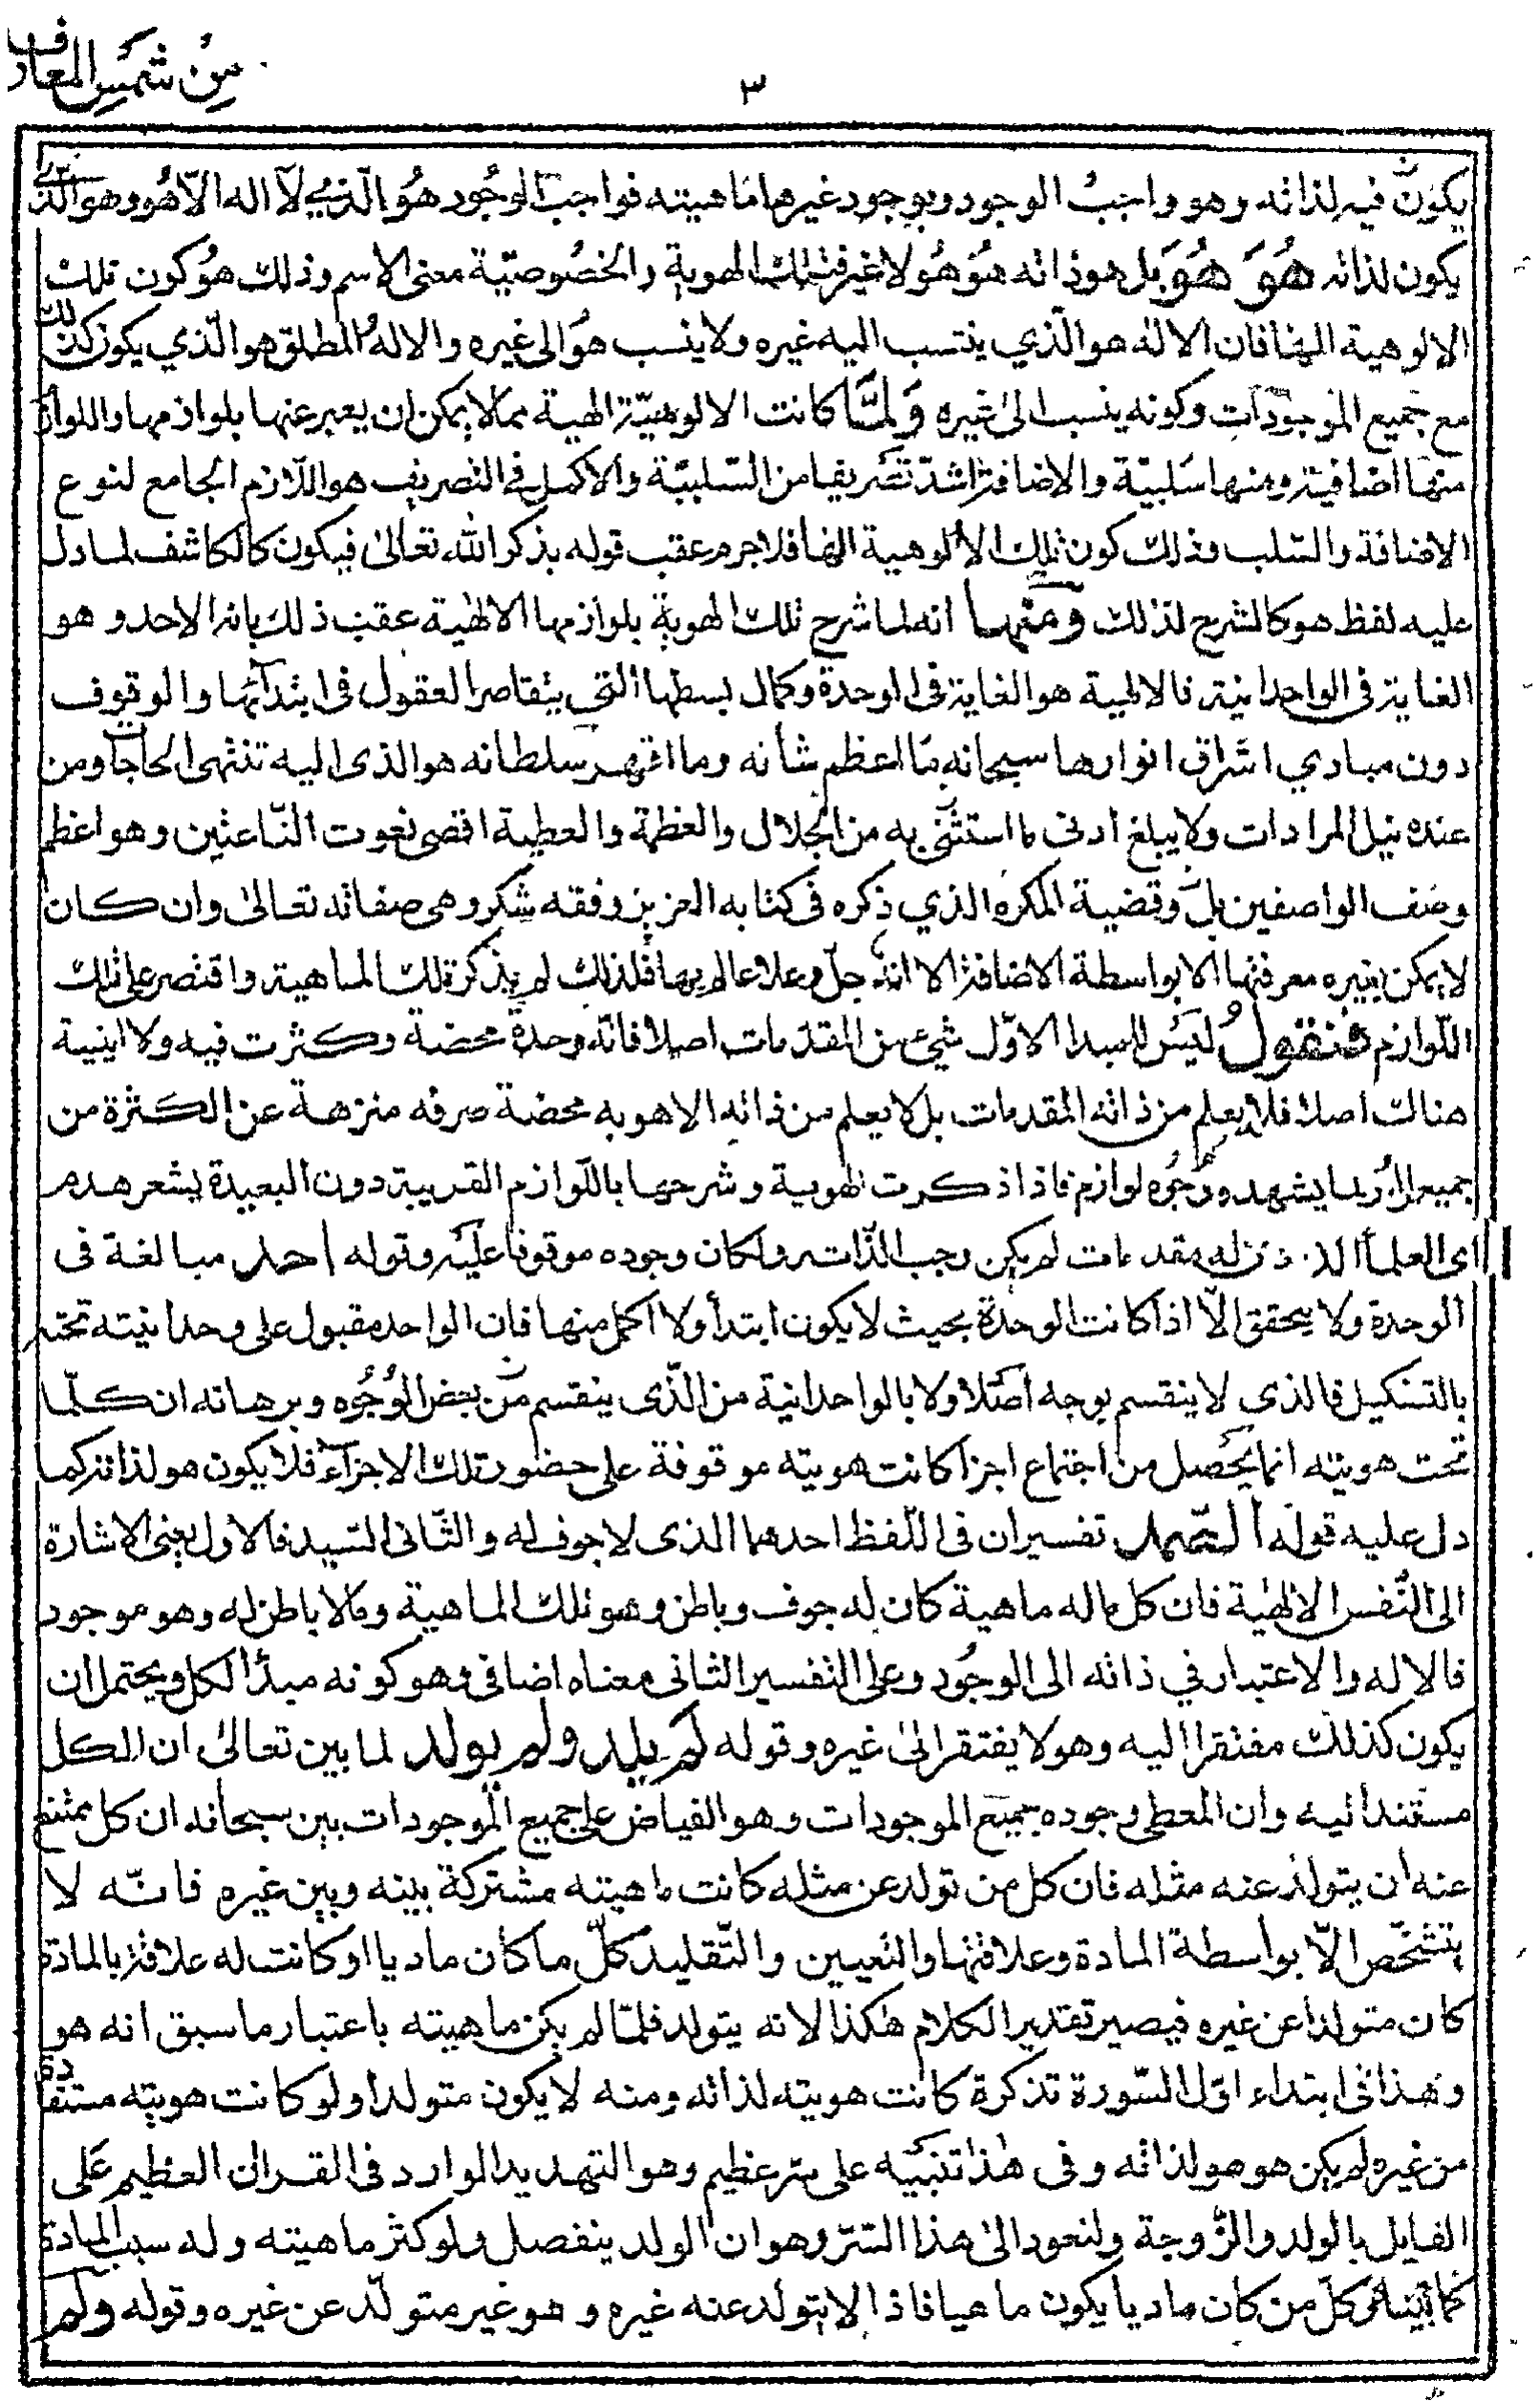 من شمس المعارف
٣
يكون فيه لذاته وهو واجب الوجود وبوجود غيرها ماهيته فواجب الوجود هو الذي لا اله الا هو وهو الذي
يكون لذاته هُوَ هُوَ بل هو ذاته هو هو لا غير فتلك الهوية والخصوصية معنى الاسم وذلك هو كون تلك
الالوهية الها فان الاله هو الذي ينتسب اليه غيره ولا ينسب هو الى غيره والاله المطلق هو الذي يكون كذلك
مع جميع الموجودات وكونه ينسب الى غيره ولمَّا كانت الالوهيّة الهية مما لا يمكن ان يعبر عنها بلوازمها واللوازم
منها اضافية ومنها سلبية والاضافة اشد تصريفا من السلبيّة والاكمل في التصريف هو اللازم الجامع لنوع
الاضافة والسلب وذلك كون تلك الالوهية الها فلاجرم عقب قوله بذكر الله تعالى فيكون كالكاشف لما دل
عليه لفظ هو كالشرح لذلك ومنها انه لما شرح تلك الهوية بلوازمها الالهية عقب ذلك بانه الاحد وهو
الغاية في الواحدانية فالالهية هو الغاية في الوحدة وكمال بسطها التي يتقاصر العقول في ابتدائها والوقوف
دون مبادي اشراق انوارها سبحانه ما اعظم شأنه وما اقهر سلطانه هو الذى اليه تنتهى الحاجات ومن
عنده نيل المرادات ولا يبلغ ادنى ما استثنى به من الجلال والعظمة والعطية اقصى نعوت الناعتين وهو اعظم
وصف الواصفين بل وقضية المكره الذي ذكره فى كتابه العزيز وفقه شكر وهى صفاته تعالى وان كان
لا يمكن بغيره معرفتها الا بواسطة الاضافة الا انه جل وعلا عالم بها فلذلك لم يذكر تلك الماهية واقتصر على تلك
اللوازم فنقول ليس للمبدا الاول شيء من المقدمات اصلا فانه وحدة محضة وكثرت فيه ولا اينية
هناك اصلا فلا يعلم من ذاته المقدمات بل لا يعلم من ذاته الا هو به محضة صرفه منزهة عن الكثرة من
جميع يشهد وجوه لوازم فاذا ذكرت الهوية وشرحها باللوازم القريبة دون البعيدة يشعر هدم
اى العلما له مقدمات لم يكن وجب الذات ولكان وجوده موقوفا عليه وقوله احد مبالغة فى
الوحدة ولا يتحقق الا اذا كانت الوحدة بحيث لا يكون ابتدأ ولا اكمل منها فان الواحد مقبول على وحدانيته تحته
بالتسكيل فالذي لا ينقسم بوجه اصلا ولا بالواحدانية من الذى ينقسم من بعض الوجوه وبرهانه ان كلما
تحت هويته انما يحصل من اجتماع اجزا كانت هويته موقوفة على حضور تلك الاجزاء فلا يكون هو لذاته كما
دل عليه قوله الصمد تفسيران فى اللفظ احدهما الذى لا جوف له والثانى السيد فالاول يعنى الاشارة
الى النفس الالهية فان كل ما له ماهية كان له جوف وباطن وهو تلك الماهية وما لا باطن له وهو موجود
فالاله والاعتبار في ذاته الى الوجود وعلى التفسير الثانى معناه اضافى وهو كونه مبدأ لكل ويحتمل ان
يكون كذلك مفتقرا اليه وهو لا يفتقر الى غيره وقوله لم يلد ولم يولد لما بين تعالى ان الكل
مستندا ليه وان المعطى وجوده جميع الموجودات وهو الفياض على جميع الموجودات بين سبحانه ان كل ممتنع
عنه ان يتولد عنه مثله فان كل من تولد عن مثله كانت ماهيته مشتركة بينه وبين غيره فانّه لا
يتشخص الا بواسطة المادة وعلاقتها والتعيين والتقليد كلّ ما كان ماديا او كانت له علاقة بالمادة
كان متولدا عن غيره فيصير تقدير الكلام هكذا لانه يتولد فلما لم يكن ماهيته باعتبار ما سبق انه هو
وهذا فى ابتداء اول السورة تذكرة كانت هويته لذاته ومنه لا يكون متولدا ولو كانت هويته مستفادة
من غيره لم يكن هو هو لذاته وفى هذا تنبيه على سر عظيم وهو التهديد الوارد فى القران العظيم على
القايل بالولد والزوجة ولنعود الى هذا السرّ وهو ان الولد ينفصل ولو كثر ماهيته وله سبب المادة
كل من كان ماديا يكون ماهيا فاذا لا يتولد عنه غيره وهو غير متولّد عن غيره وقوله ولم